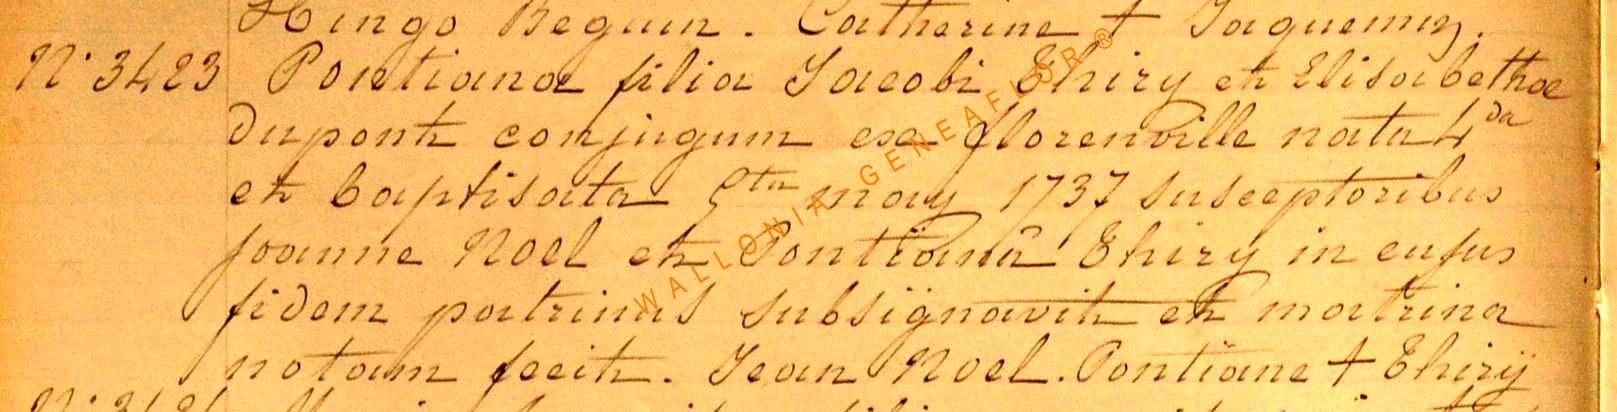 Hingo Beguin. Catherine + Jaquemin.
N° 3423 Pontiana filia Jacobi Thiry et Elisabethae
dupont conjugum ex florenville nata 4da
et baptisata 5ta may 1737 susceptoribus
Joanne Noel et Pontianâ Thiry in cujus
fidem patrinus subsignavit et matrina
notam fecit. Jean Noel. Pontiane + Thirÿ
WALLONIA GENEAFLOR ®